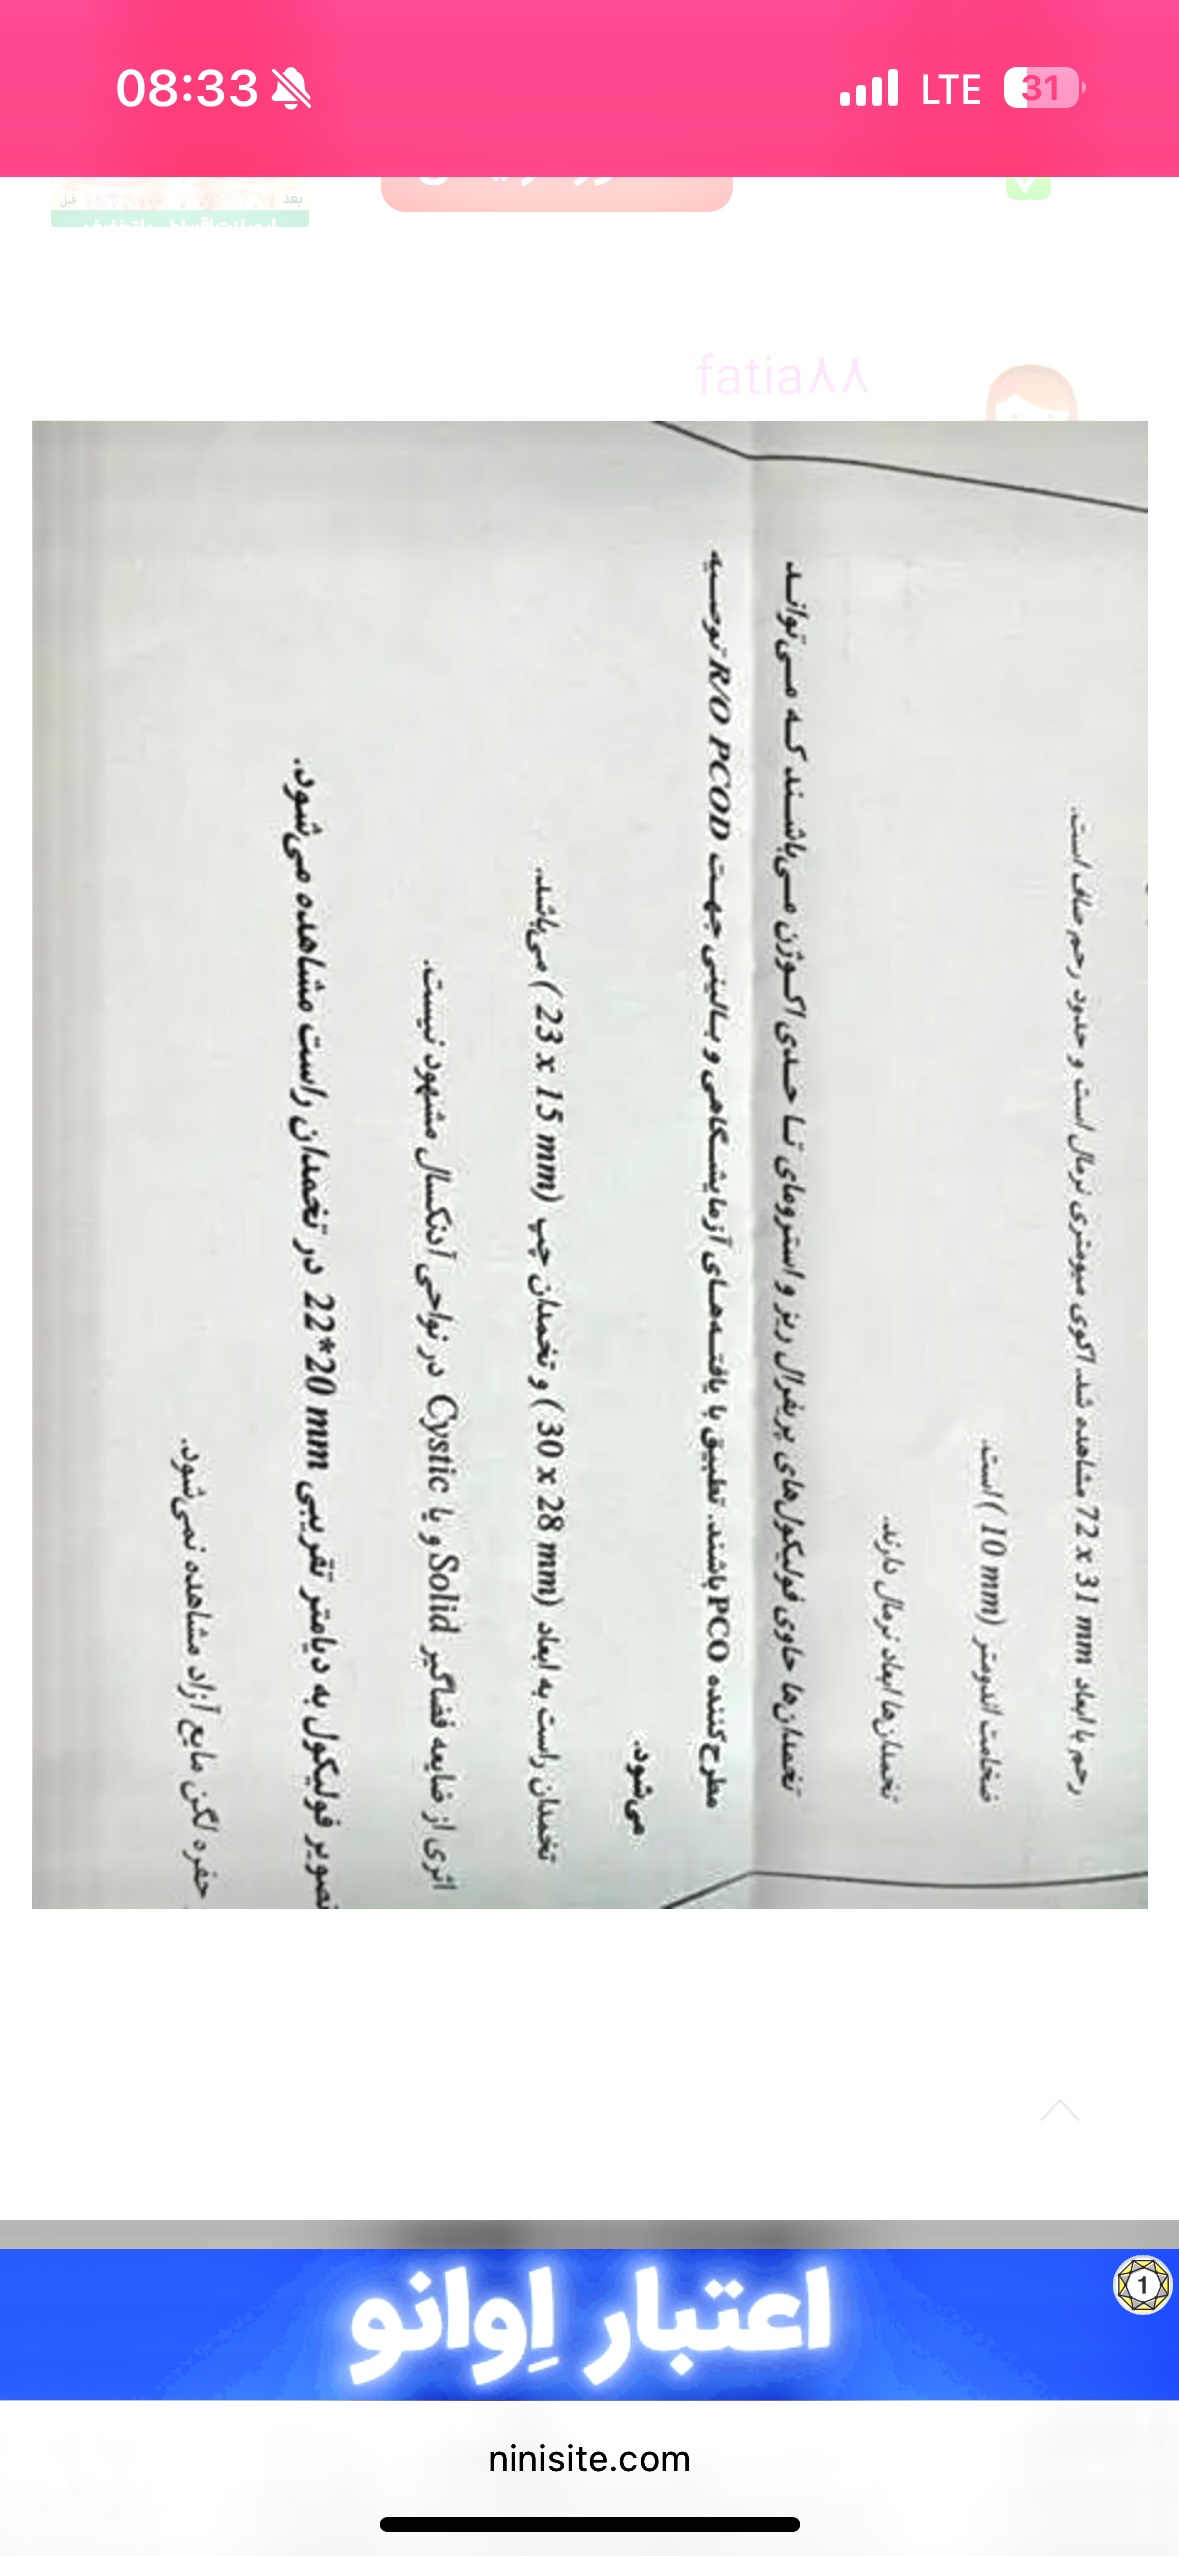 08:33
LTE 31
قبل
بعد
fatia۸۸
رحم با ابعاد 72 x 31 mm مشاهده شد. اکوی میومتری نرمال است و حدود رحم صاف است.
ضخامت اندومتر (10 mm) است.
تخمدان‌ها ابعاد نرمال دارند.
تخمدان‌ها حاوی فولیکول‌های پریفرال ریز و استرومای تا حدی اکوژن می‌باشند که می‌تواند
مطرح‌کننده PCO باشند. تطبیق با یافته‌های آزمایشگاهی و بالینی جهت R/O PCOD توصیه
می‌شود.
تخمدان راست به ابعاد (30 x 28 mm) و تخمدان چپ (23 x 15 mm) می‌باشد.
اثری از ضایعه فضاگیر Solid و یا Cystic در نواحی آدنکسال مشهود نیست.
تصویر فولیکول به دیامتر تقریبی 22*20 mm در تخمدان راست مشاهده می‌شود.
حفره لگن مایع آزاد مشاهده نمی‌شود.
اعتبار اِوانو
1
ninisite.com